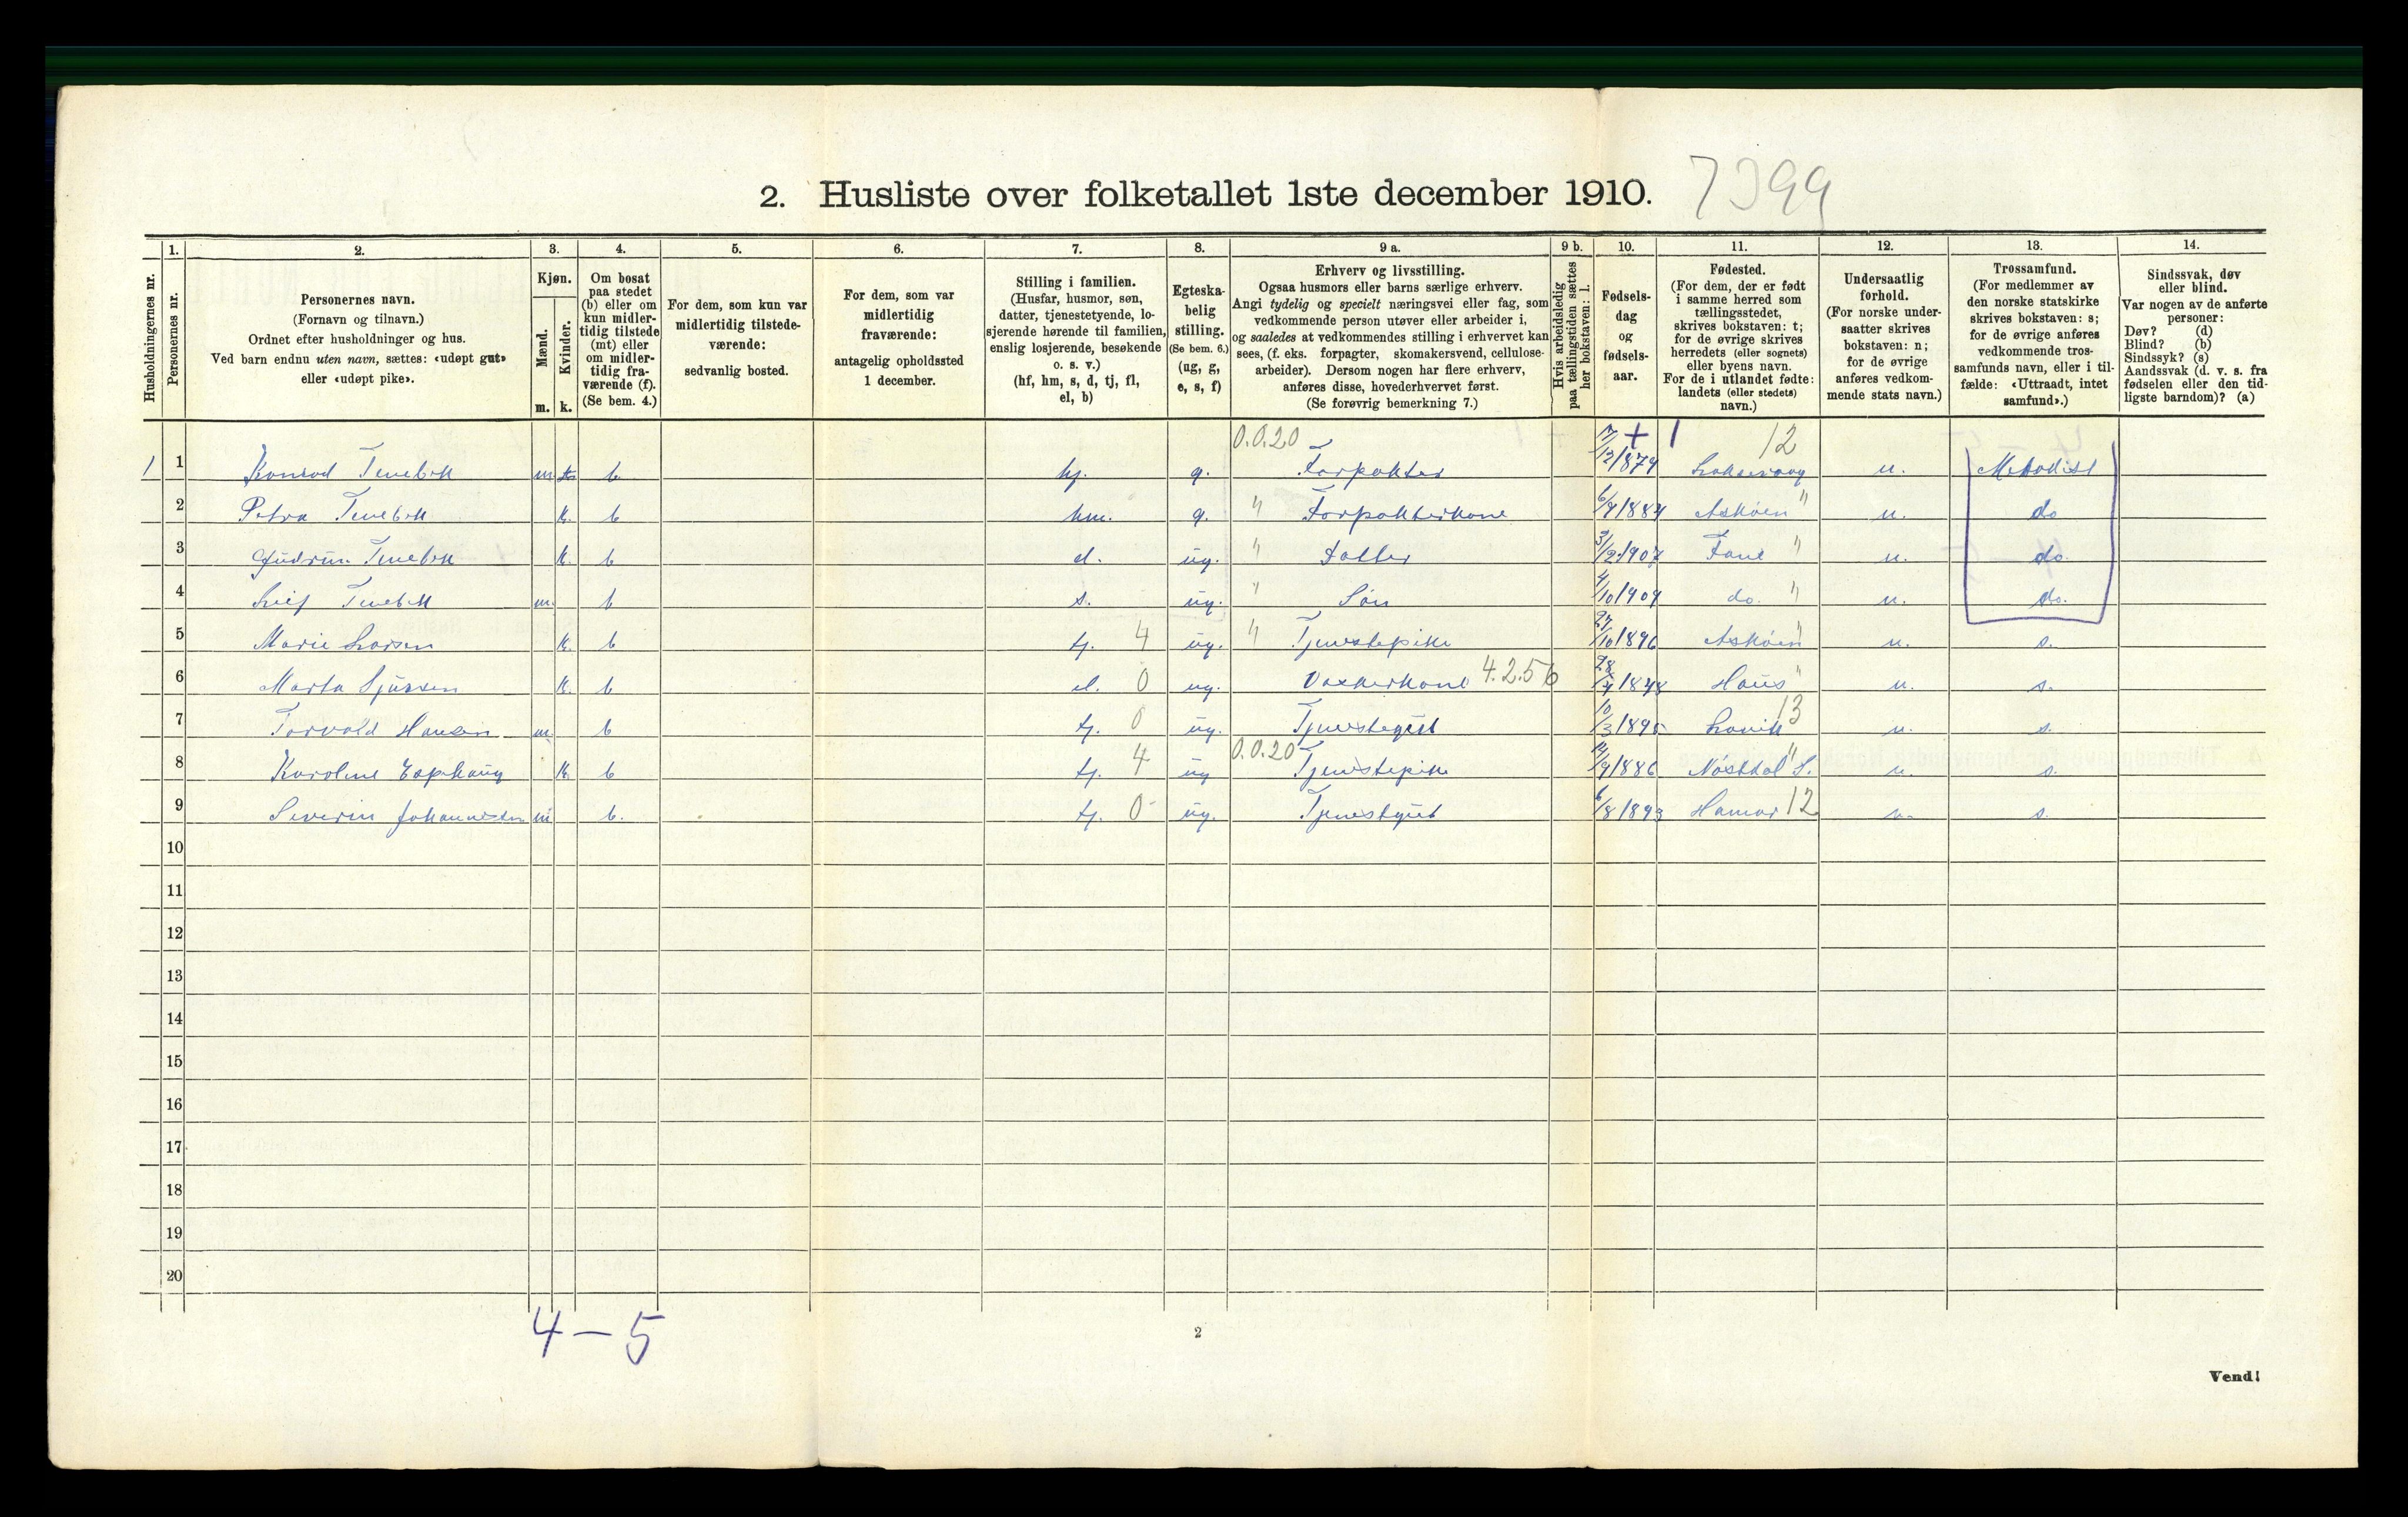 2. Husliste over folketallet 1ste december 1910. 7399
1. 2. 3. 4. 5. 6. 7. 8. 9 a. 9 b. 10. 11. 12. 13. 14.
Husholdningernes nr.
Personernes nr.
Personernes navn.
(Fornavn og tilnavn.)
Ordnet efter husholdninger og hus.
Ved barn endnu uten navn, sættes: «udøpt gut»
eller «udøpt pike».
Kjøn.
Mænd.
Kvinder.
m. k.
Om bosat
paa stedet
(b) eller om
kun midler-
tidig tilstede
(mt) eller
om midler-
tidig fra-
værende (f).
(Se bem. 4.)
For dem, som kun var
midlertidig tilstede-
værende:
sedvanlig bosted.
For dem, som var
midlertidig
fraværende:
antagelig opholdssted
1 december.
Stilling i familien.
(Husfar, husmor, søn,
datter, tjenestetyende, lo-
sjerende hørende til familien,
enslig losjerende, besøkende
o. s. v.)
(hf, hm, s, d, tj, fl,
el, b)
Egteska-
belig
stilling.
(Se bem. 6.)
(ug, g,
e, s, f)
Erhverv og livsstilling.
Ogsaa husmors eller barns særlige erhverv.
Angi tydelig og specielt næringsvei eller fag, som
vedkommende person utøver eller arbeider i,
og saaledes at vedkommendes stilling i erhvervet kan
sees, (f. eks. forpagter, skomakersvend, cellulose-
arbeider). Dersom nogen har flere erhverv,
anføres disse, hovederhvervet først.
(Se forøvrig bemerkning 7.)
Hvis arbeidsledig
paa tællingstiden sættes
her bokstaven: l.
Fødsels-
dag
og
fødsels-
aar.
Fødested.
(For dem, der er født
i samme herred som
tællingsstedet,
skrives bokstaven: t;
for de øvrige skrives
herredets (eller sognets)
eller byens navn.
For de i utlandet fødte:
landets (eller stedets)
navn.)
Undersaatlig
forhold.
(For norske under-
saatter skrives
bokstaven: n;
for de øvrige
anføres vedkom-
mende stats navn.)
Trossamfund.
(For medlemmer av
den norske statskirke
skrives bokstaven: s;
for de øvrige anføres
vedkommende tros-
samfunds navn, eller i til-
fælde: «Uttraadt, intet
samfund».)
Sindssvak, døv
eller blind.
Var nogen av de anførte
personer:
Døv? (d)
Blind? (b)
Sindssyk? (s)
Aandssvak (d. v. s. fra
fødselen eller den tid-
ligste barndom)? (a)
0.0.20 + 1 12
1 1 Konrad m b hf. g. Forpakter 7/12 1879 Laksevaag n. Metodist
2 Petra k. b hm. g. " Forpakterkone 6/9 1884 Askøen " n. do
3 Gudrun k. b d. ug. " Datter 3/2 1907 Fane " n. do.
4 Leif m. b s. ug. " Søn 4/10 1909 do. " n. do.
5 Marie Larsen k. b tj. 4 ug. " Tjenstepike 27/10 1896 Askøen " n. s.
6 Marta Sjursen k. b el. 0 ug. Vaskerkone 4.2.56 28/4 1848 Haus " n. s.
7 Torvald Hansen m. b tj. 0 ug. Tjenstegut 10/3 1895 Lavik 13 n. s.
8 Karoline k. b tj. 4 ug 0.0.20 Tjenstepike /9 1886 " n. s.
9 Severin Johannesen m b. tj. 0 ug. Tjenstgut 6/8 1893 Hamar 12 n. s.
10
11
12
13
14
15
16
17
18
19
20
4 — 5
2
Vend!